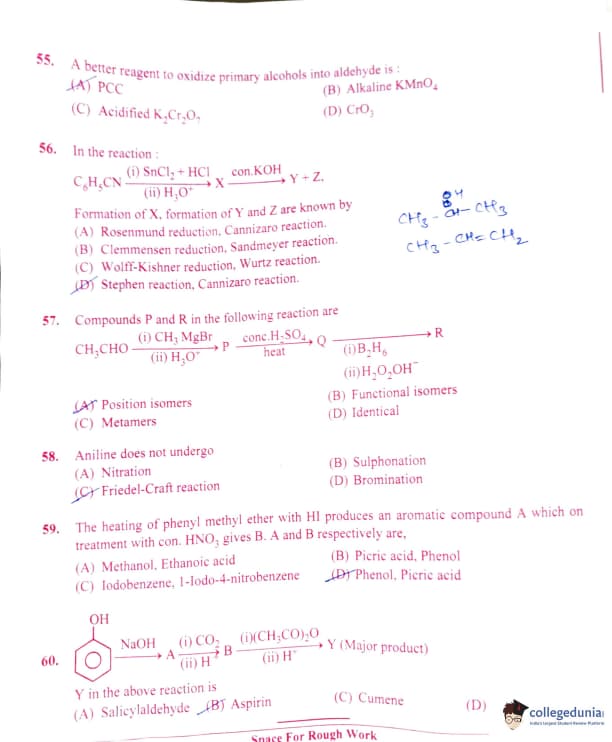 55. A better reagent to oxidize primary alcohols into aldehyde is :
(A) PCC (B) Alkaline KMnO₄
(C) Acidified K₂Cr₂O₇ (D) CrO₃
56. In the reaction :
C₆H₅CN (i) SnCl₂ + HCl (ii) H₃O⁺ → X con.KOH → Y + Z.
Formation of X, formation of Y and Z are known by
(A) Rosenmund reduction, Cannizaro reaction.
(B) Clemmensen reduction, Sandmeyer reaction.
(C) Wolff-Kishner reduction, Wurtz reaction.
(D) Stephen reaction, Cannizaro reaction.
OH
CH₃ - CH - CH₃
CH₃ - CH = CH₂
57. Compounds P and R in the following reaction are
CH₃CHO (i) CH₃ MgBr (ii) H₃O⁺ → P conc.H₂SO₄ heat → Q (i)B₂H₆ (ii)H₂O₂OH⁻ → R
(A) Position isomers (B) Functional isomers
(C) Metamers (D) Identical
58. Aniline does not undergo
(A) Nitration (B) Sulphonation
(C) Friedel-Craft reaction (D) Bromination
59. The heating of phenyl methyl ether with HI produces an aromatic compound A which on
treatment with con. HNO₃ gives B. A and B respectively are,
(A) Methanol, Ethanoic acid (B) Picric acid, Phenol
(C) Iodobenzene, 1-Iodo-4-nitrobenzene (D) Phenol, Picric acid
OH
60. NaOH → A (i) CO₂ (ii) H⁺ → B (i)(CH₃CO)₂O (ii) H⁺ → Y (Major product)
Y in the above reaction is
(A) Salicylaldehyde (B) Aspirin (C) Cumene (D)
Space For Rough Work
collegedunia
India's largest Student Review Platform